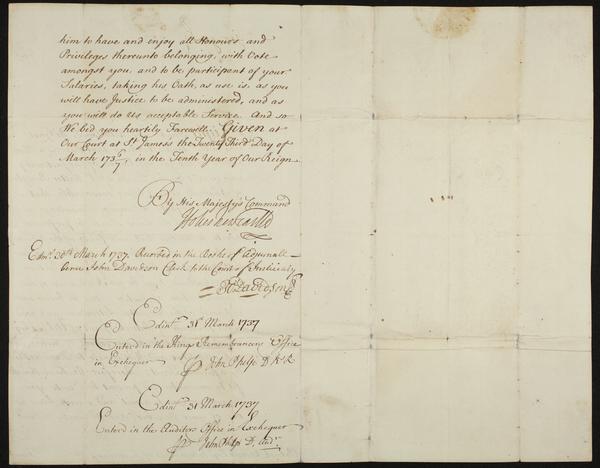 him to have and enjoy all Honours and
Privileges thereunto belonging, with Vote
amongst you, and to be participent of your
Salaries, taking his Oath, as use is, as you
will have Justice to be administered, and as
you will do Us acceptable Service. And so
We bid you heartily Farewell. Given at
Our Court at St James's the Twenty Third Day of
March 173 6/7, in the Tenth Year of Our Reign
By His Majesty's Command
Holles Newcastle
Edinr. 30th March 1737. Recorded in the Books of Adjournall
John Davidson Clerk to the Court of Justiciary
Edinr. 31 March 1737
Entered in the Kings Remembrancers Office
in Exchequer
John Philp D. K R
Edinr. 31 March 1737
Enterd in the Auditors Office in Exchequer
John Philp D. Audr.